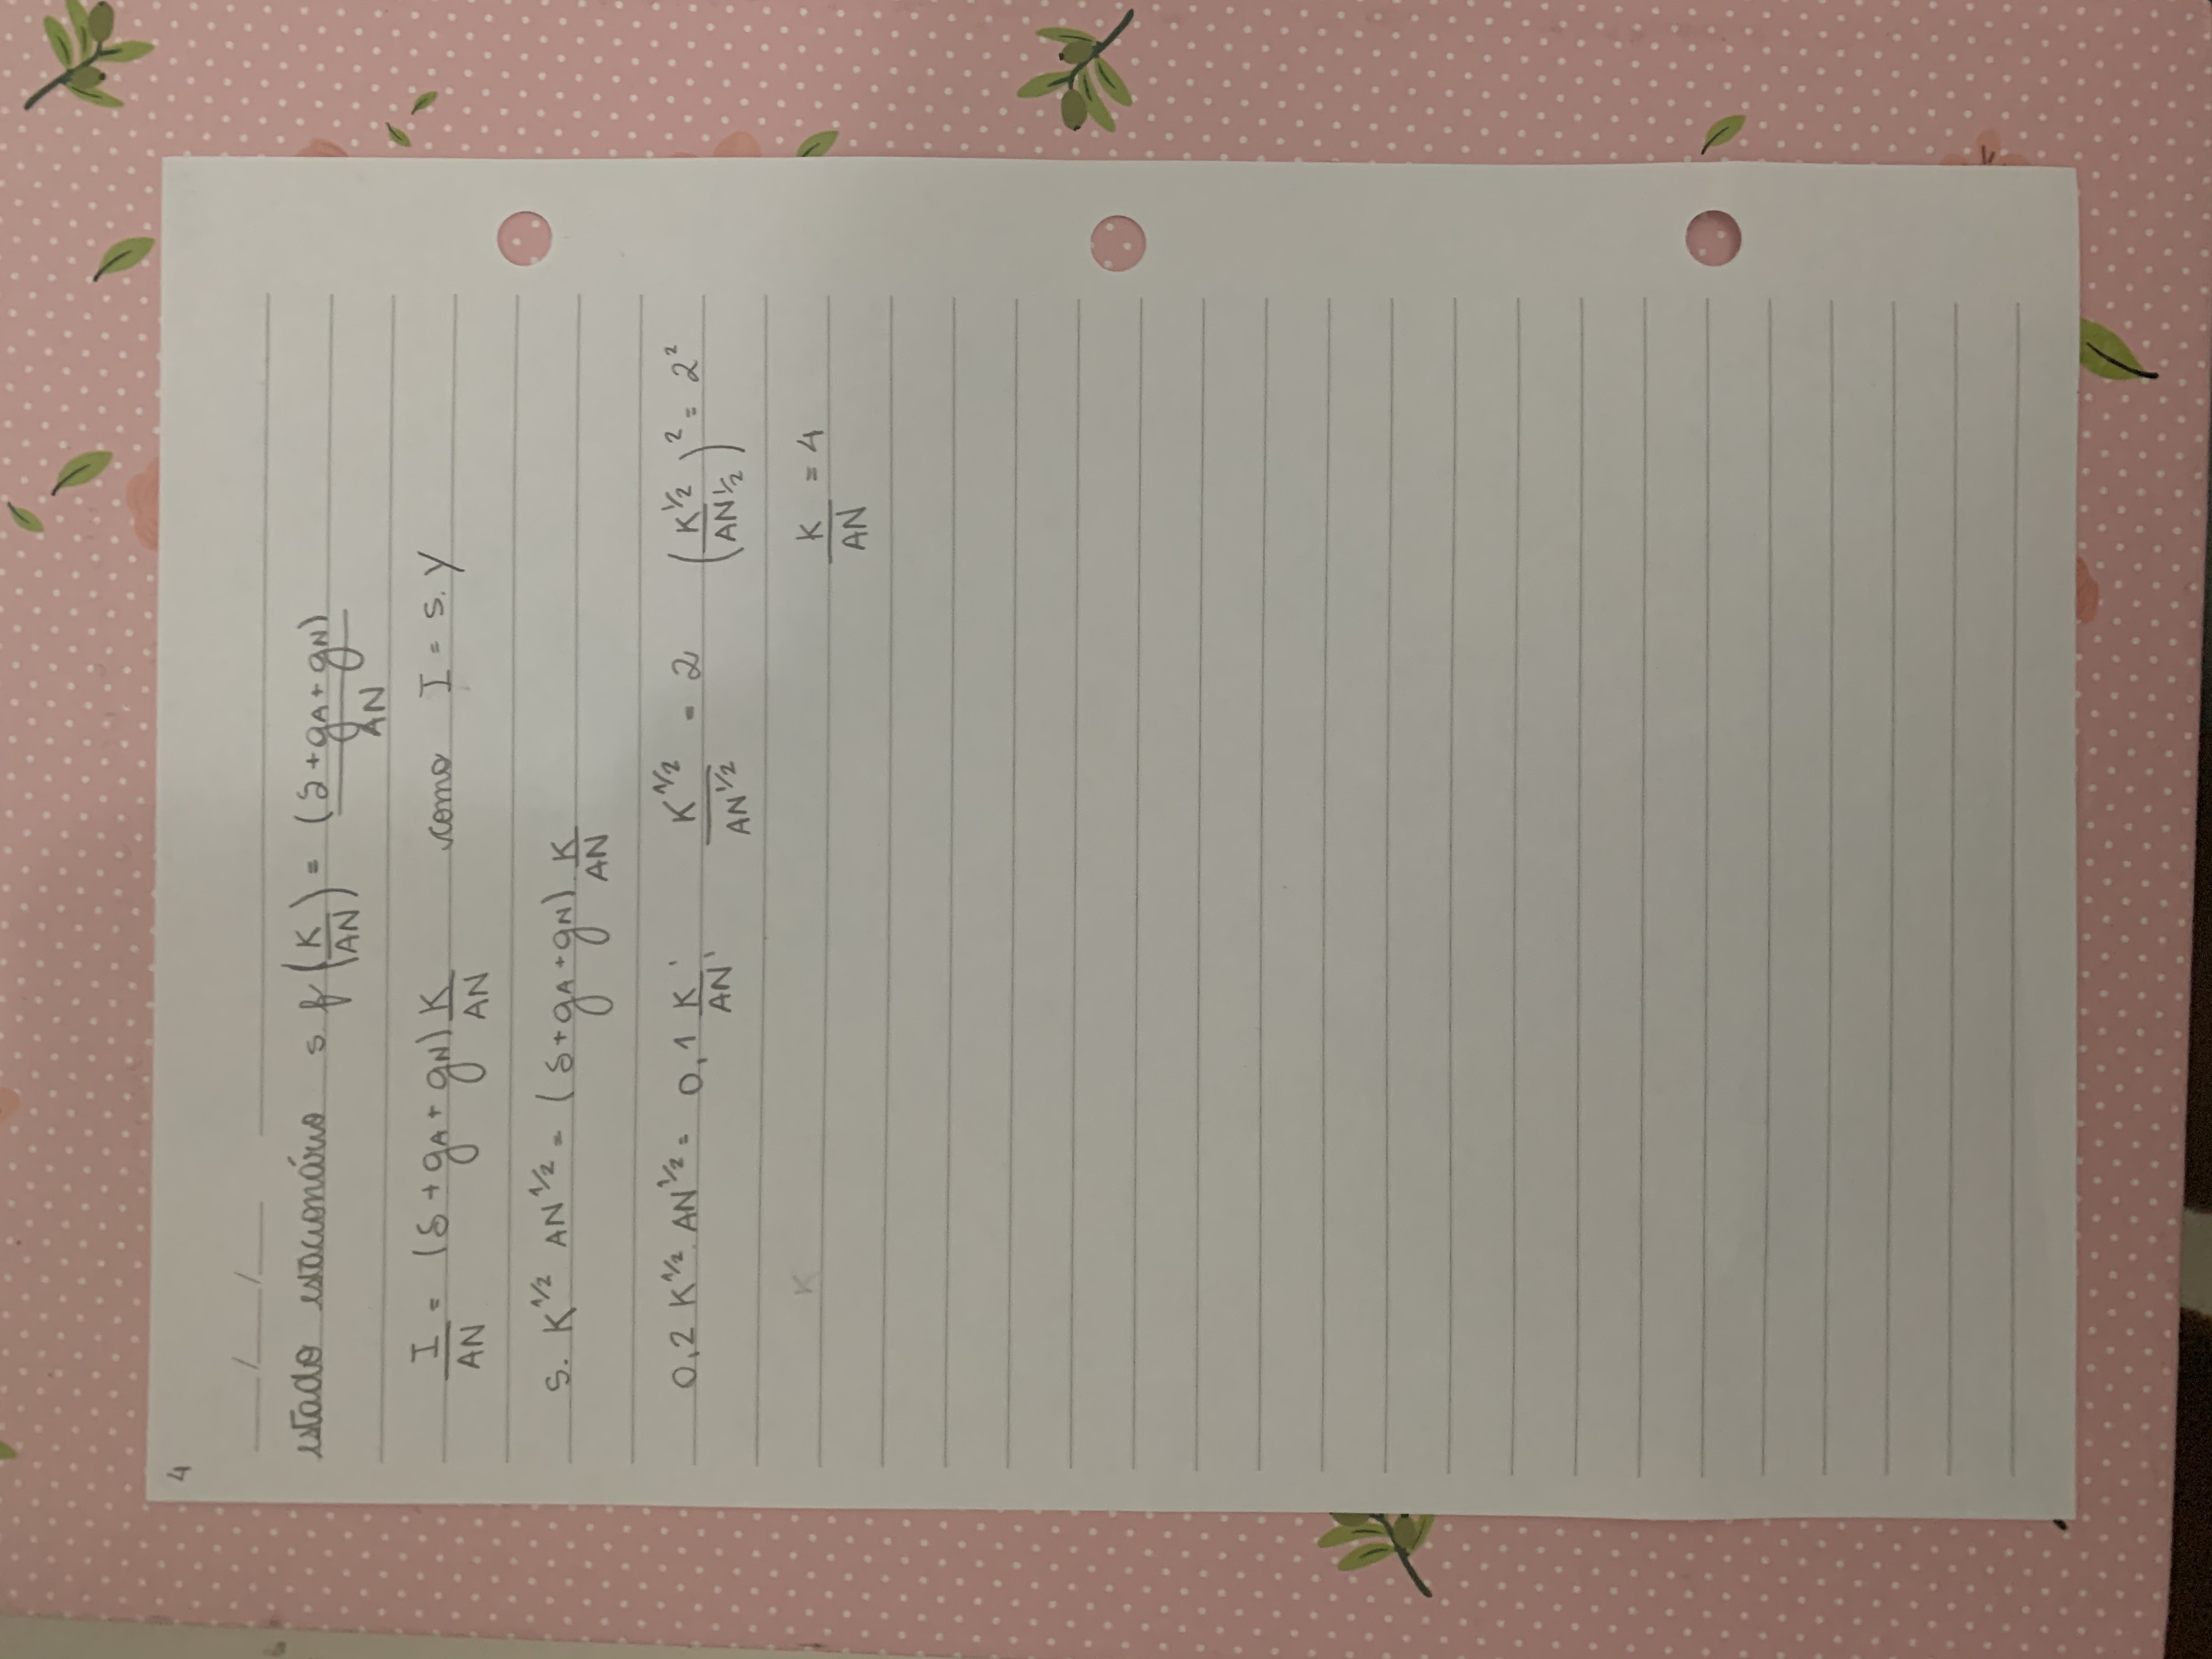 4
___/___/___
estado estacionário s. f (K/AN) = (δ + gA + gN)/AN
I/AN = (δ + gA + gN) K/AN como I = s. Y
s. K^1/2 AN^1/2 = (δ + gA + gN) K/AN
0,2 K^1/2 AN^1/2 = 0,1 K/AN ; K^1/2/AN^1/2 = 2 (K^1/2/AN^1/2)^2 = 2^2
K K/AN = 4